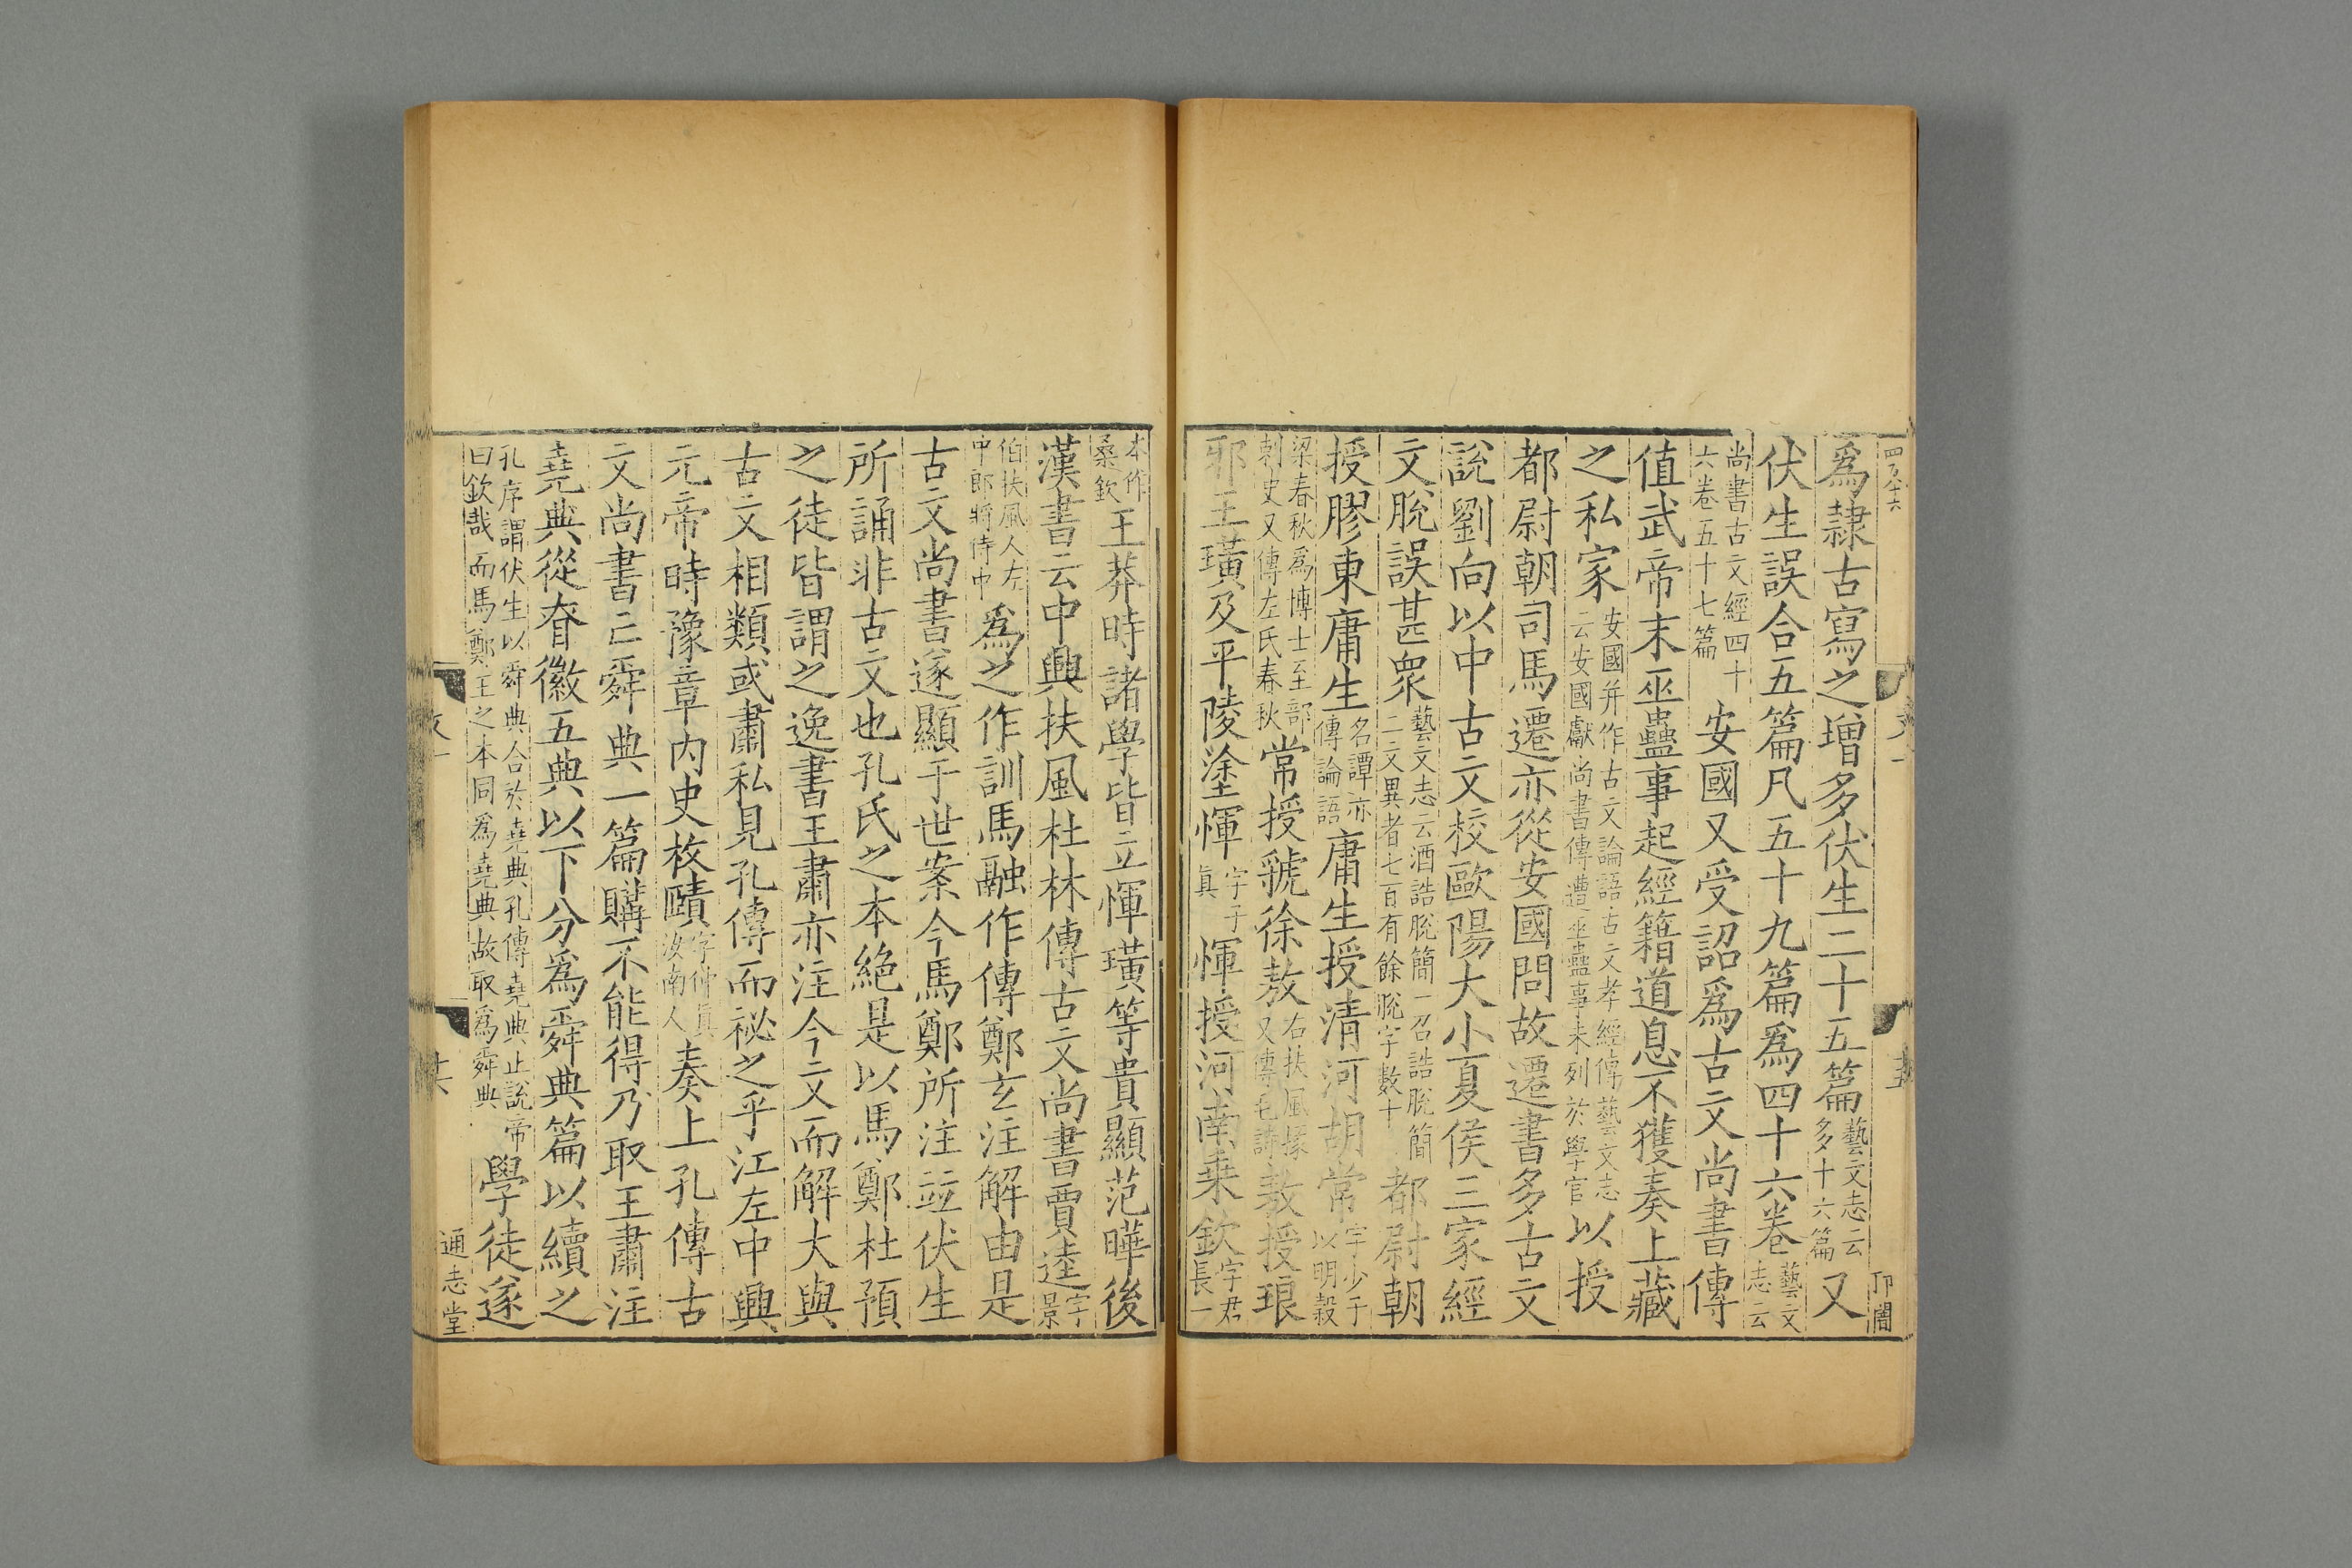 爲隷古寫之增多伏生二十五篇藝文志云多十六篇又
伏生誤合五篇凡五十九篇爲四十六卷藝文志云
尚書古文經四十六卷五十七篇安國又受詔爲古文尚書傳
值武帝末巫蠱事起經籍道息不獲奏上藏
之私家安國并作古文論語古文孝經傳藝文志云安國獻尚書傳遭巫蠱事未列於學官以授
都尉朝司馬遷亦從安國問故遷書多古文
說劉向以中古文校歐陽大小夏侯三家經
文脫誤甚眾藝文志云酒誥脫簡一召誥脫簡二文異者七百有餘脫字數十都尉朝
授膠東庸生名譚亦傳論語庸生授清河胡常字少子以明穀
梁春秋爲博士至部刺史又傳左氏春秋常授虢徐敖右扶風掾又傳毛詩敖授琅
邪王璜及平陵塗惲字子真惲授河南乗欽字君長一
本作桑欽王莽時諸學皆立惲璜等貴顯范曄後
漢書云中興扶風杜林傳古文尚書賈逵字景
伯扶風人左中郎將侍中爲之作訓馬融作傳鄭玄注解由是
古文尚書遂顯于世案今馬鄭所注竝伏生
所誦非古文也孔氏之本絕是以馬鄭杜預
之徒皆謂之逸書王肅亦注今文而解大與
古文相類或肅私見孔傳而祕之乎江左中興
元帝時豫章內史枚賾字仲真汝南人奏上孔傳古
文尚書亡舜典一篇購不能得乃取王肅注
堯典從眘徽五典以下分爲舜典篇以續之
孔序謂伏生以舜典合於堯典孔傳堯典止說帝曰欽哉而馬鄭王之本同爲堯典故取爲舜典學徒遂
通志堂